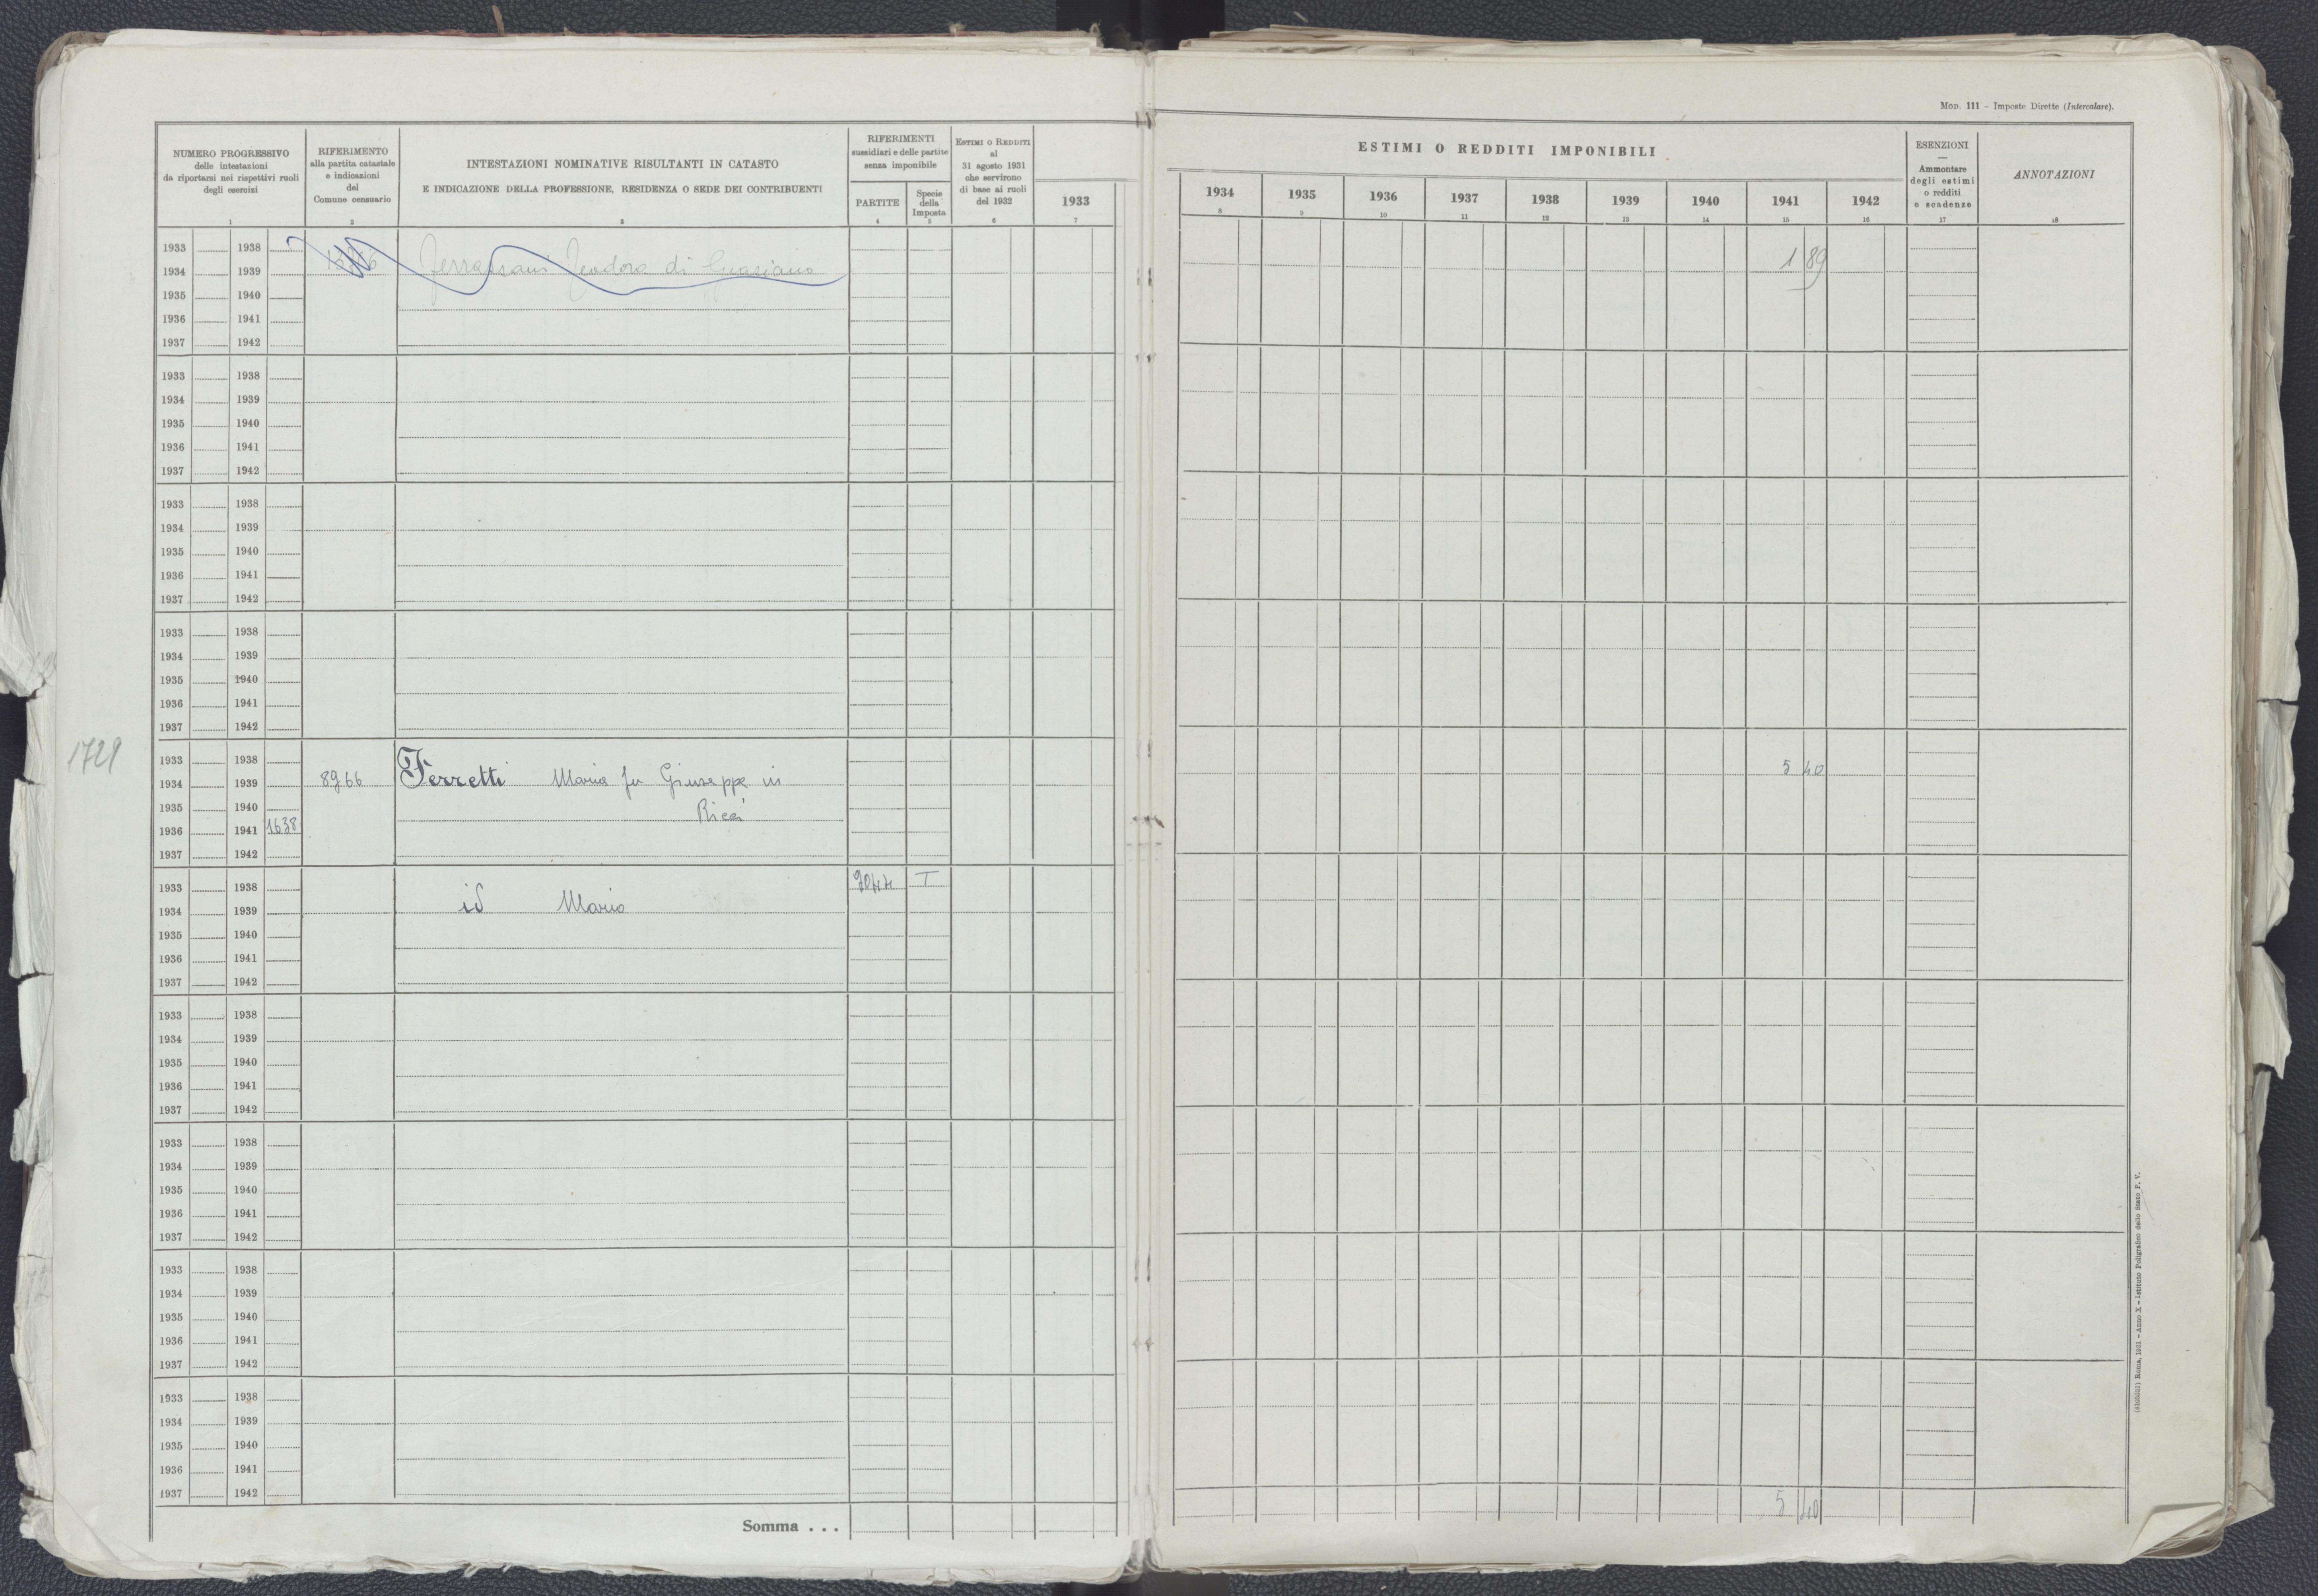 MOD. 111 - Imposte Dirette (Intercalare).
NUMERO PROGRESSIVO
delle intestazioni
da riportarsi nei rispettivi ruoli
degli esercizi
1
RIFERIMENTO
alla partita catastale
e indicazioni
del
Comune censuario
2
INTESTAZIONI NOMINATIVE RISULTANTI IN CATASTO
E INDICAZIONE DELLA PROFESSIONE, RESIDENZA O SEDE DEI CONTRIBUENTI
3
RIFERIMENTI
sussidiari e delle partite
senza imponibile
PARTITE
4
Specie
della
Imposta
5
ESTIMI O REDDITI
al
31 agosto 1931
che servirono
di base ai ruoli
del 1932
6
1933
7
ESTIMI O REDDITI IMPONIBILI
1934 1935 1936 1937 1938 1939 1940 1941 1942
8 9 10 11 12 13 14 15 16
ESENZIONI
Ammontare
degli estimi
o redditi
e scadenze
17
ANNOTAZIONI
18
1933 1938
1934 1939 di 1 89
1935 1940
1936 1941
1937 1942
1933 1938
1934 1939
1935 1940
1936 1941
1937 1942
1933 1938
1934 1939
1935 1940
1936 1941
1937 1942
1933 1938
1934 1939
1935 1940
1936 1941
1937 1942
1729
1933 1938
1934 1939 8966 Ferretti Maria fu Giuseppe in 5 40
1935 1940 Ricci
1936 1941 1638
1937 1942
1933 1938 T
1934 1939 id Mario
1935 1940
1936 1941
1937 1942
1933 1938
1934 1939
1935 1940
1936 1941
1937 1942
1933 1938
1934 1939
1935 1940
1936 1941
1937 1942
1933 1938
1934 1939
1935 1940
1936 1941
1937 1942
1933 1938
1934 1939
1935 1940
1936 1941
1937 1942
Somma . . . 5 40
Roma, 1931 - Anno X - Istituto Poligrafico dello Stato P. V.